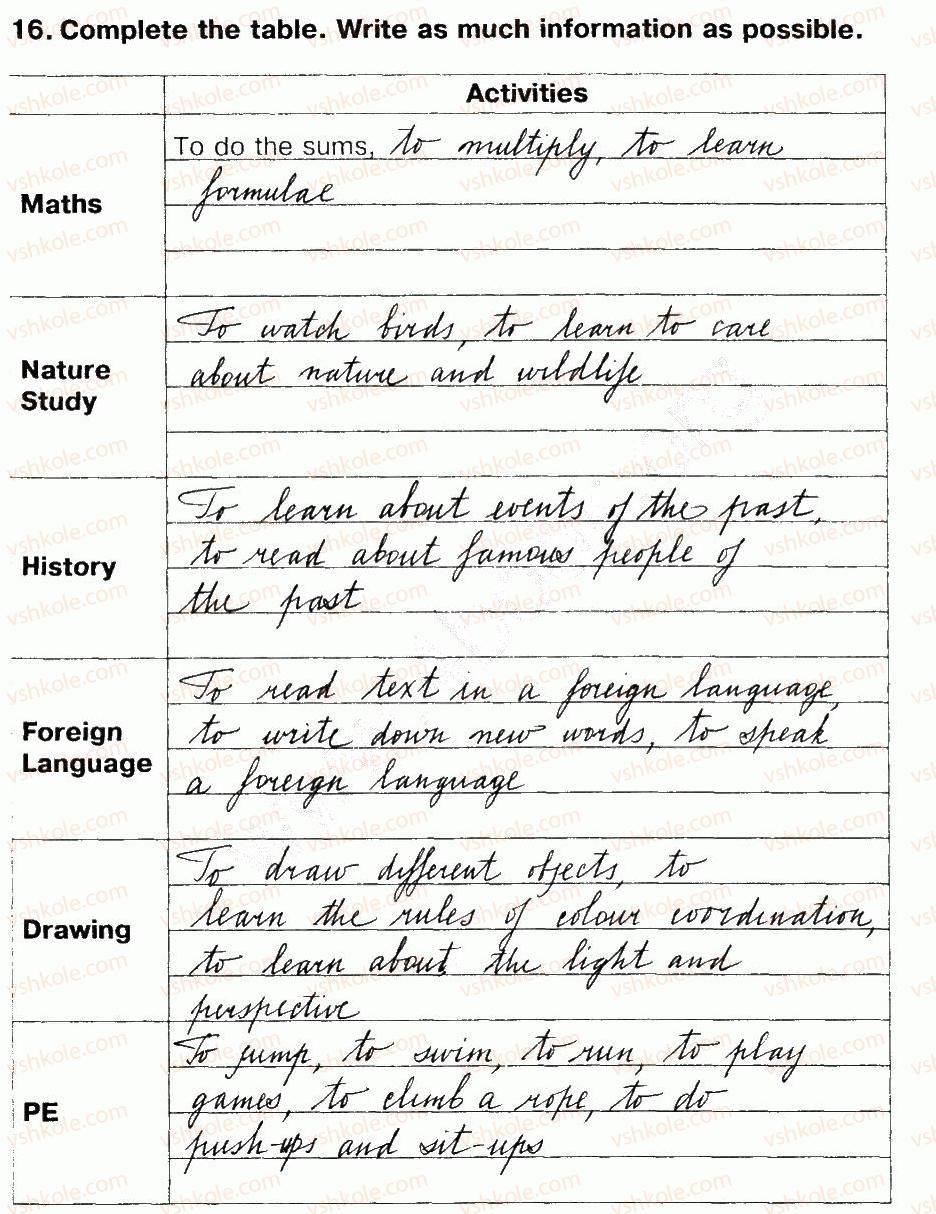 16. Complete the table. Write as much information as possible.
Activities
Maths
To do the sums, to multiply, to learn
formulae
Nature
Study
To watch birds, to learn to care
about nature and wildlife
History
To learn about events of the past,
to read about famous people of
the past
Foreign
Language
To read text in a foreign language,
to write down new words, to speak
a foreign language
Drawing
To draw different objects, to
learn the rules of colour coordination,
to learn about the light and
perspective
PE
To jump, to swim, to run, to play
games, to climb a rope, to do
push-ups and sit-ups
vshkole.com